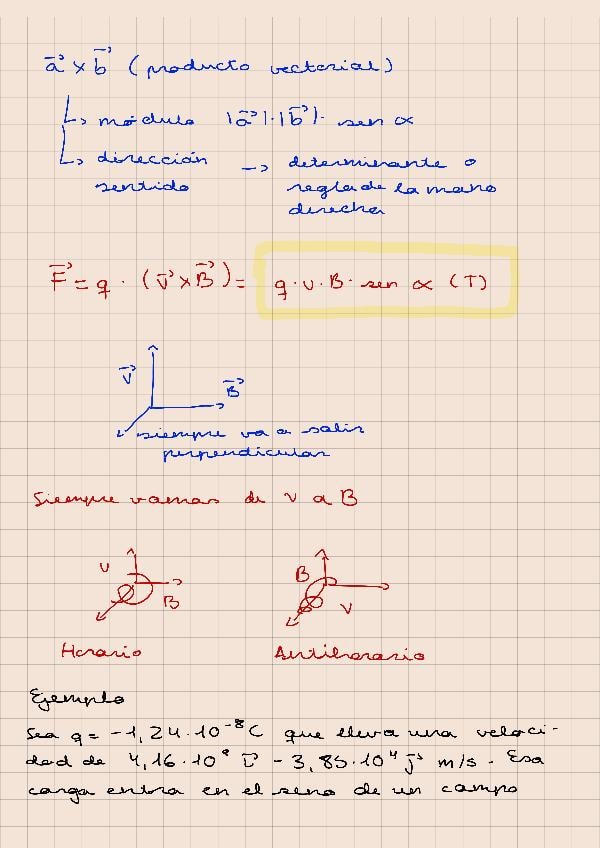 a⃗ × b⃗ (producto vectorial)
↳ módulo |a⃗|·|b⃗|· sen α
↳ dirección → determinante o
sentido regla de la mano
derecha
F⃗ = q · (v⃗ × B⃗) = q · v · B · sen α (T)
v⃗
B⃗
siempre va a salir
perpendicular
Siempre vamos de v a B
v B
B v
Horario Antihorario
Ejemplo
Sea q = -1,24·10⁻⁸ C que lleva una veloci-
dad de 4,16·10 i⃗ - 3,85·10⁴ j⃗ m/s. Esa
carga entra en el seno de un campo